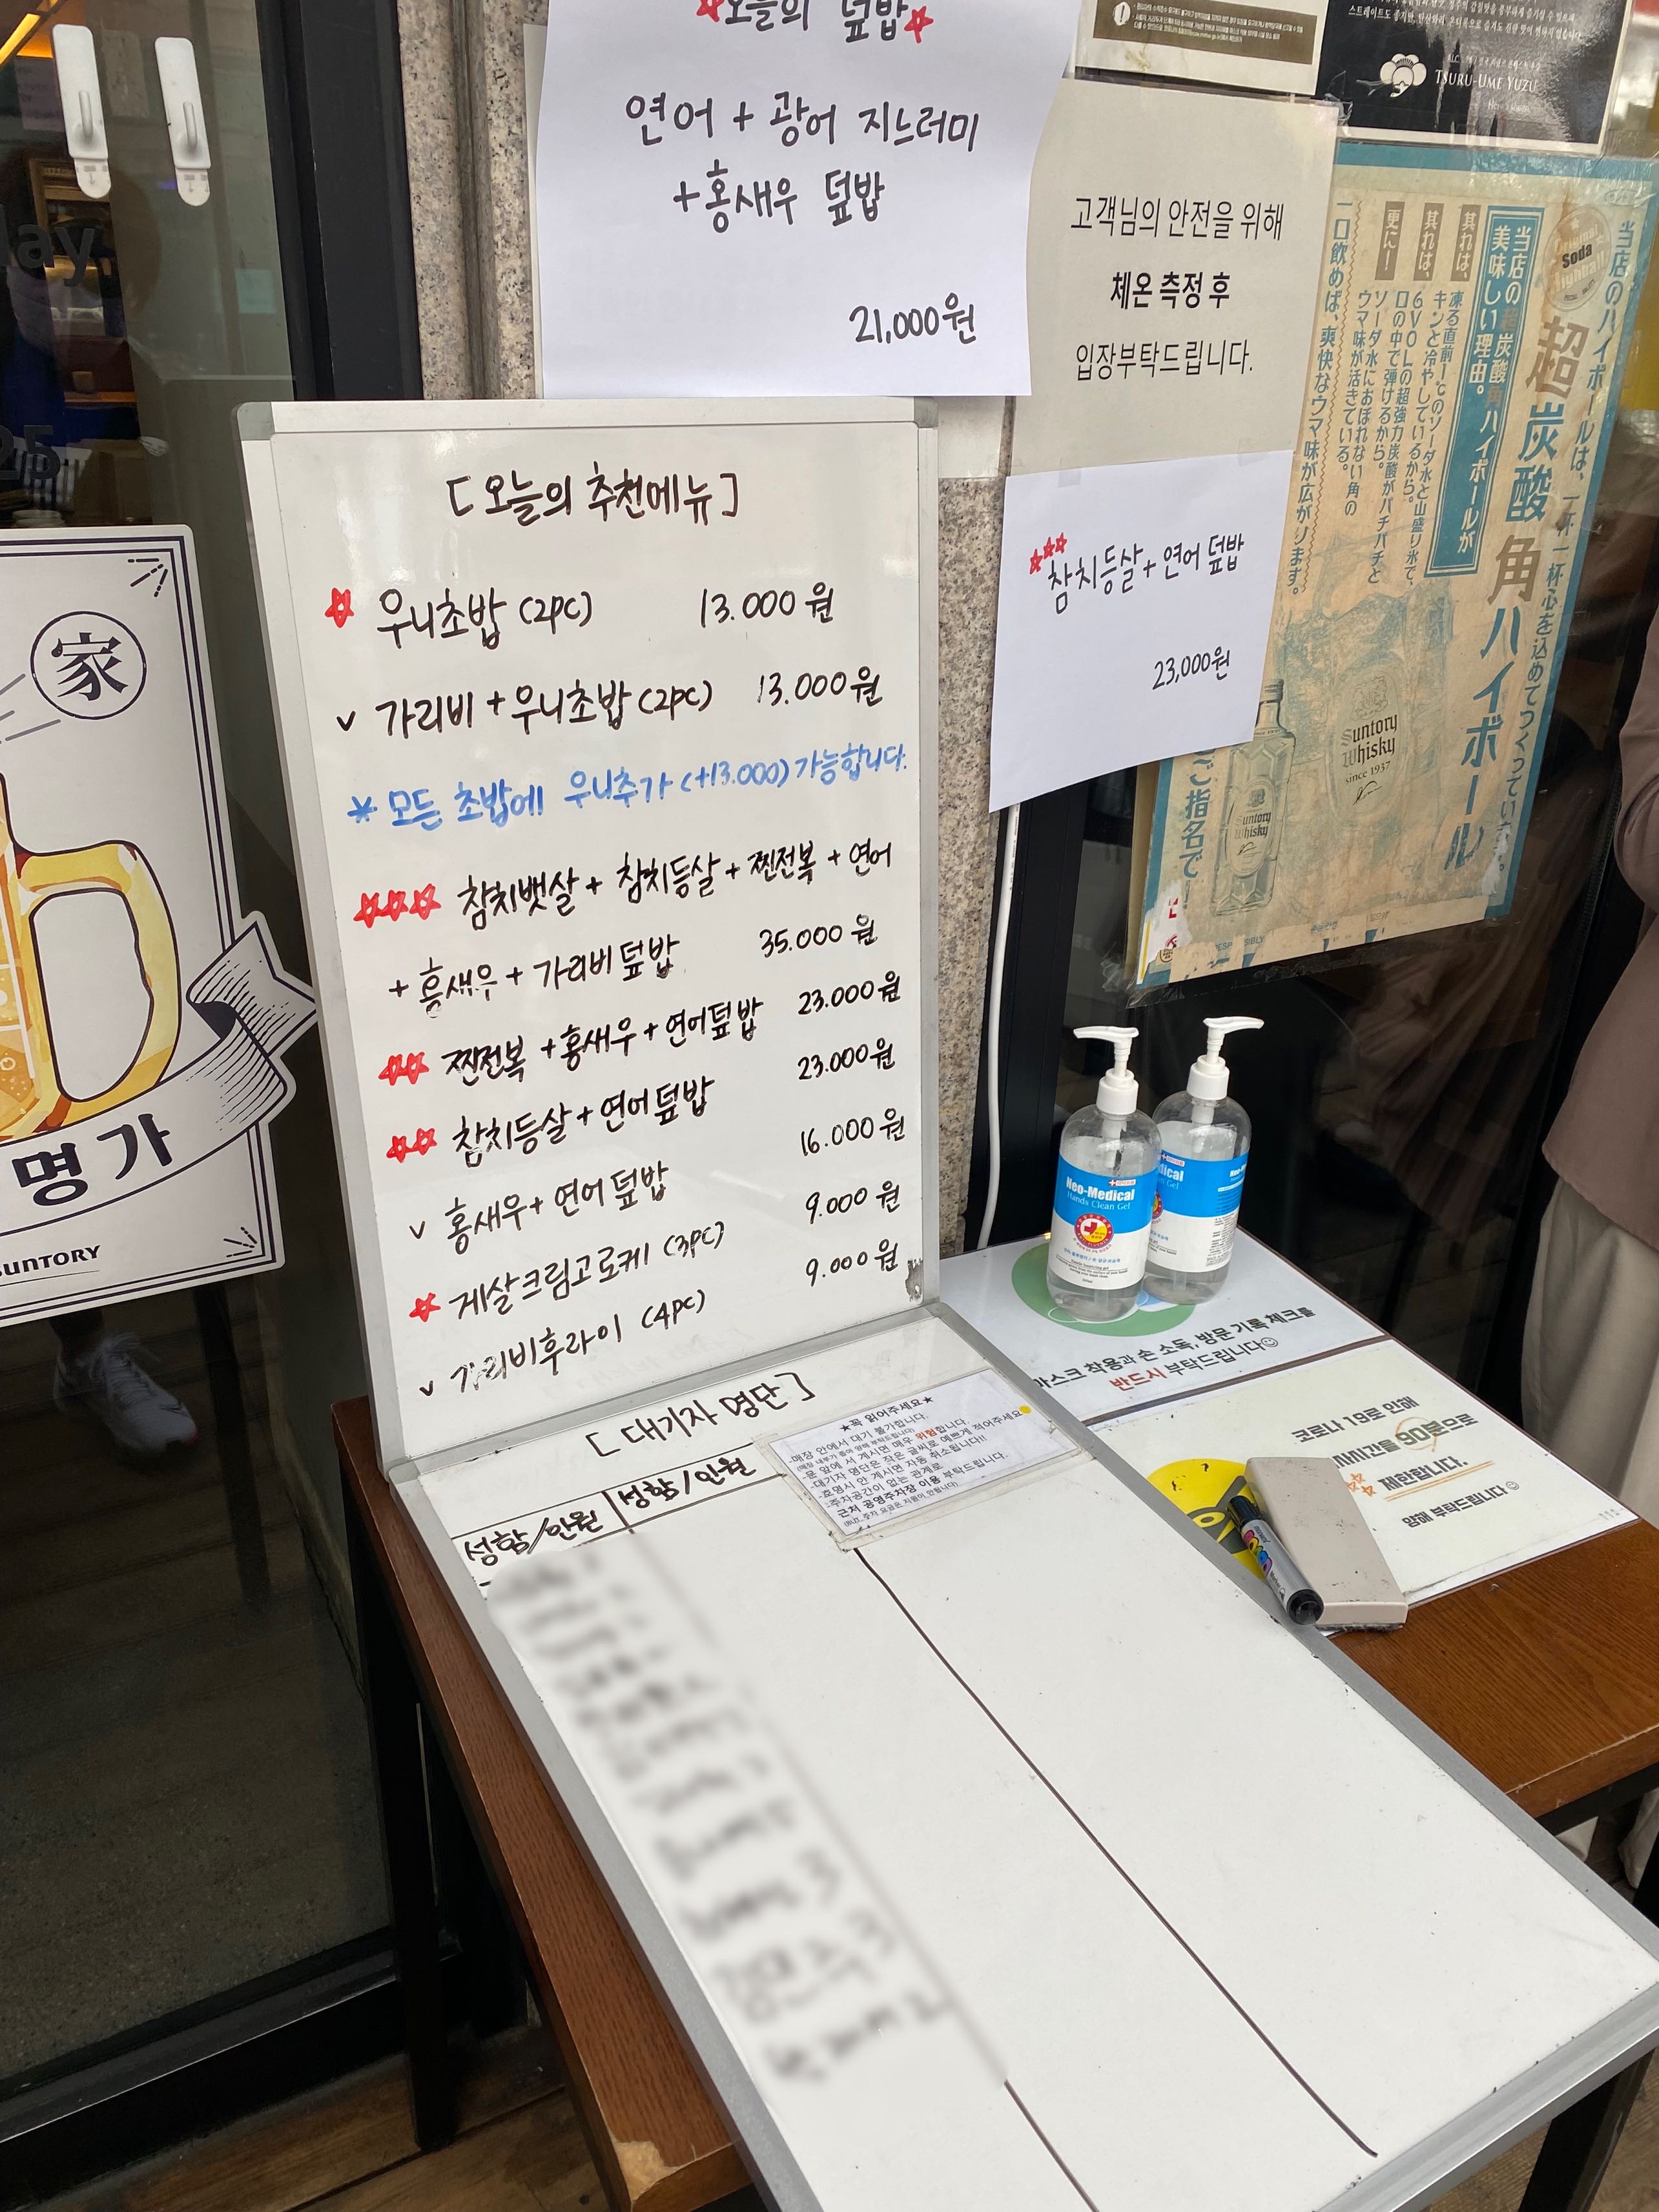 오늘의 덮밥
연어 + 광어 지느러미
+홍새우 덮밥
21,000원
TSURU-UME YUZU
고객님의 안전을 위해
체온 측정 후
입장부탁드립니다.
참치등살+연어 덮밥
23,000원
当店のハイボールは、一杯一杯心を込めてつくっています。
Soda
超炭酸角ハイボール
当店の超炭酸角ハイボールが
美味しい理由。
其れは、
凍る直前1℃のソーダ水と山盛り氷で、
キンと冷やしているから。
其れは、
6VOLの超強力炭酸がパチパチと
口の中で弾けるから。
更に!
ソーダ水におぼれない角の
ウマ味が活きている。
一口飲めば、爽快なウマ味が広がります。
ご指名で
Suntory
Whisky
since 1937
Suntory
Whisky
[오늘의 추천메뉴]
우니초밥 (2pc) 13.000원
v 가리비+우니초밥(2pc) 13.000원
* 모든 초밥에 우니추가(+13.000)가능합니다.
참치뱃살+ 참치등살+찐전복+연어
+홍새우+가리비덮밥 35.000원
찐전복+홍새우+연어덮밥 23.000원
참치등살+연어덮밥 23.000원
v 홍새우+연어덮밥 16.000원
게살크림고로케 (3pc) 9.000원
v 가리비후라이 (4pc) 9.000원
家
명가
SUNTORY
Neo-Medical
Hands Clean Gel
마스크 착용과 손 소독, 방문 기록 체크를
반드시 부탁드립니다☺
코로나 19로 인해
식사시간을 90분으로
제한합니다.
양해 부탁드립니다☺
[대기자 명단]
성함/인원 | 성함/인원
★꼭 읽어주세요★
-매장 안에서 대기 불가합니다.
-문 앞에 서 계시면 매우 위험합니다.
-대기자 명단은 작은 글씨로 예쁘게 적어주세요
-호명시 안 계시면 자동 취소됩니다!!
-주차공간이 없는 관계로
근처 공영주차장 이용 부탁드립니다.